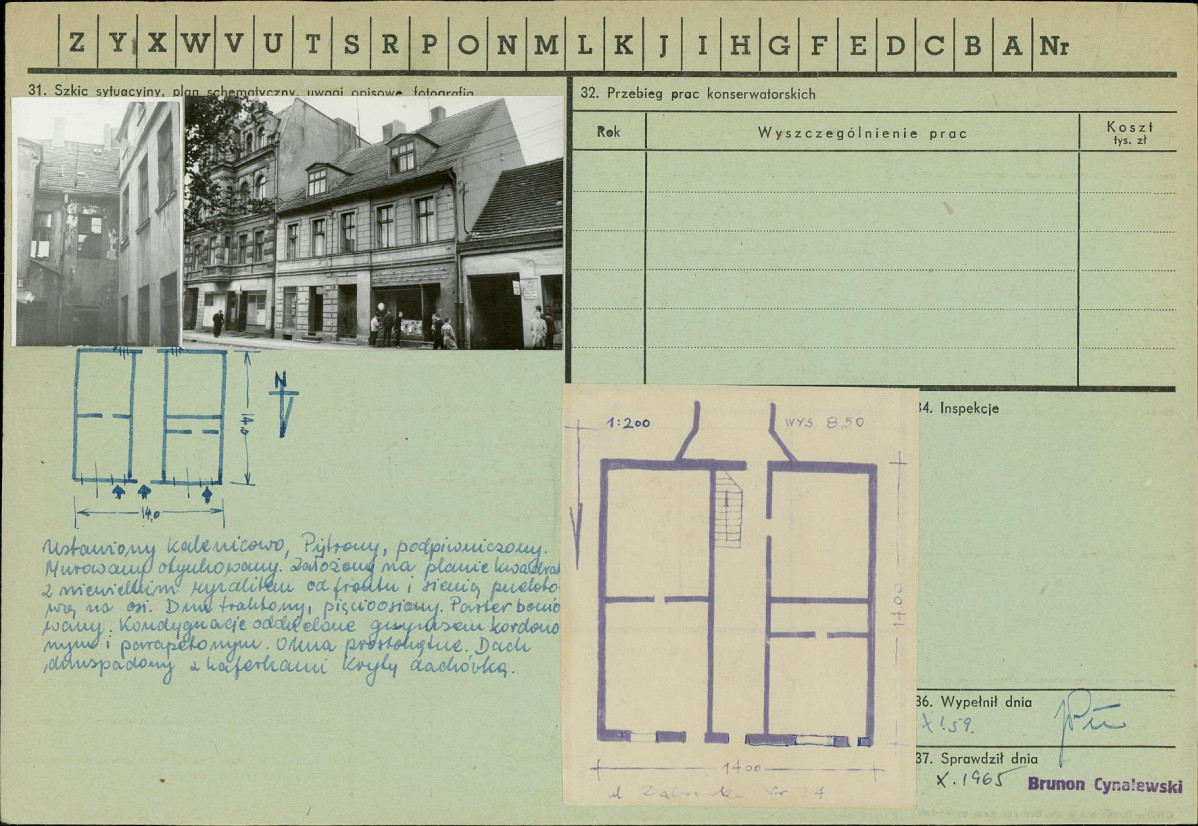 Z Y X W V U T S R P O N M L K J I H G F E D C B A Nr
31. Szkic sytuacyjny, plan schematyczny, uwagi opisowe, fotografia
32. Przebieg prac konserwatorskich
Rok
Wyszczególnienie prac
Koszt
tys. zł
N
14,0
14,0
Ustawiony kalenicowo, Piętrowy, podpiwniczony.
Murowany otynkowany. Założony na planie kwadra
z niewielkim ryzalitem od frontu i sienią przeloto
wą na osi. Dwutraktowy, pięcioosiowy. Parter bonio
wany. Kondygnacje oddzielone gzymsem kordono
wym i parapetowym. Okna prostokątne. Dach
dwuspadowy z kaferkami kryty dachówką.
1:200
WYS 8.50
14.00
1400
Nr 24
34. Inspekcje
36. Wypełnił dnia
X.59.
37. Sprawdził dnia
X.1965
Brunon Cynalewski